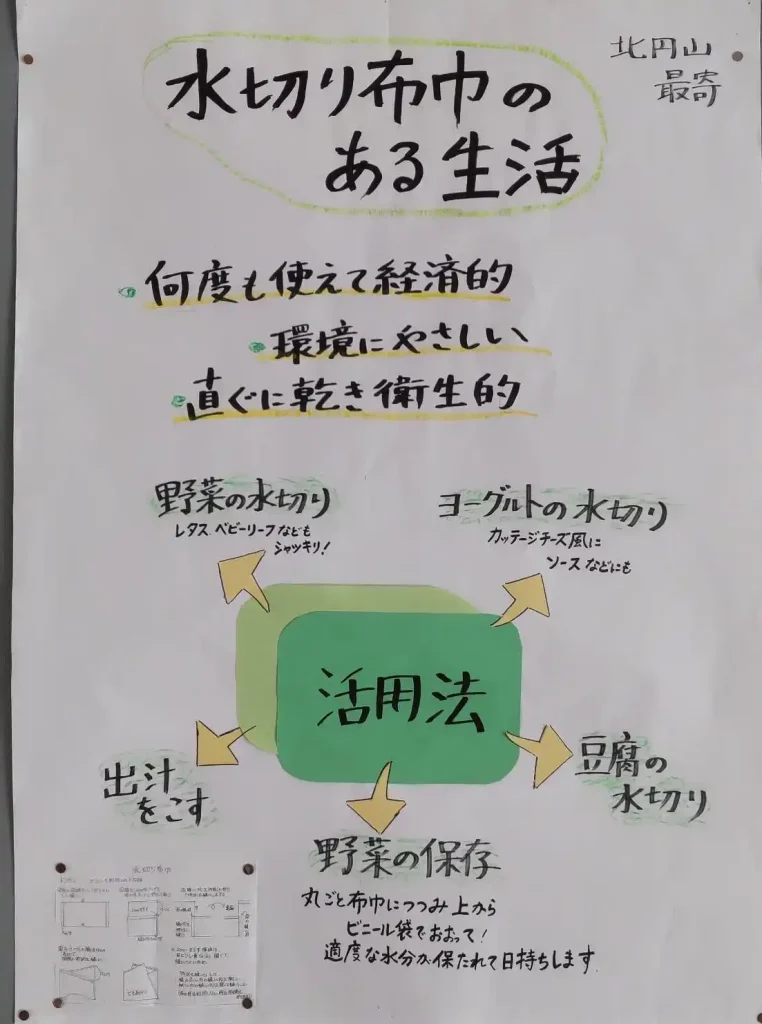 北円山
最寄
水切り布巾の
ある生活
何度も使えて経済的
環境にやさしい
直ぐに乾き衛生的
野菜の水切り
レタス ベビーリーフなども
シャッキリ!
ヨーグルトの水切り
カッテージチーズ風に
ソースなどにも
活用法
出汁
をこす
豆腐の
水切り
野菜の保存
丸ごと布巾につつみ上から
ビニール袋でおおって!
適度な水分が保たれて日持ちします
水切り布巾